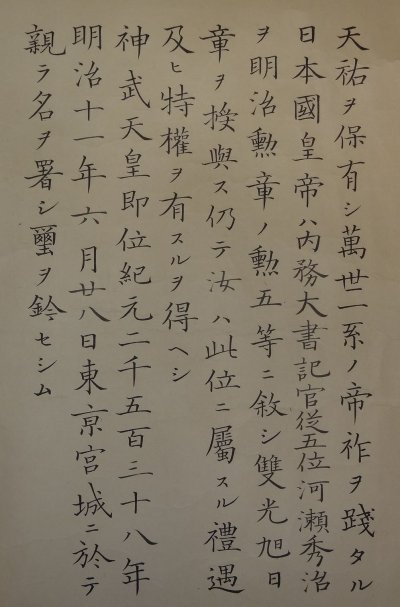 天祐ヲ保有シ萬世一系ノ帝祚ヲ踐タル
日本國皇帝ハ内務大書記官従五位河瀬秀治
ヲ明治勲章ノ勲五等ニ敘シ雙光旭日
章ヲ授與ス仍テ汝ハ此位ニ屬スル禮遇
及ヒ特權ヲ有スルヲ得ヘシ
神武天皇即位紀元二千五百三十八年
明治十一年六月廿八日東京宮城ニ於テ
親ラ名ヲ署シ璽ヲ鈐セシム